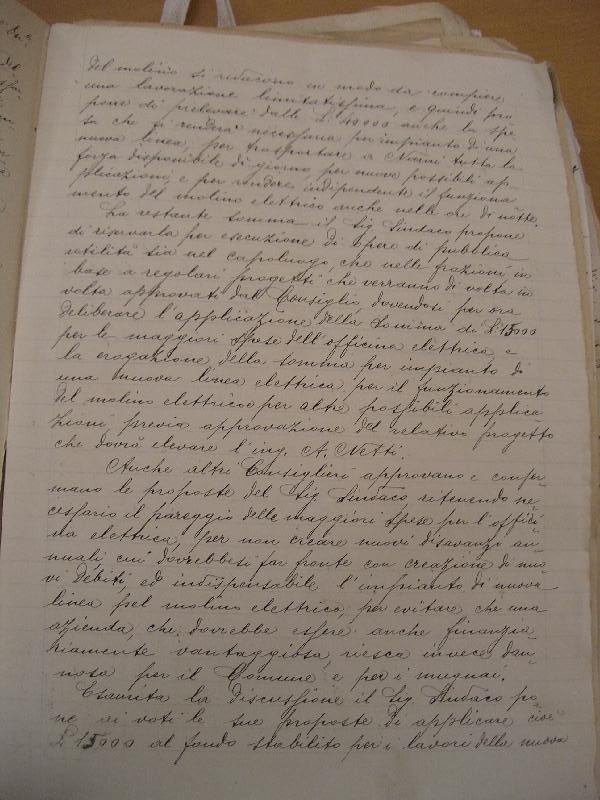 del molino si riducono in modo da compiere
una lavorazione limitatissima, e quindi pro
pone di prelevare dalle L. 40000 anche la spe
sa che si renderà necessaria per impianto di una
nuova linea, per trasportare a Narni tutta la
forza disponibile di giorno per nuove possibili ap
plicazioni e per rendere indipendente il funziona
mento del molino elettrico anche nelle ore di notte.
La restante somma il Sig Sindaco propone
di riservarla per esecuzione di Opere di pubblica
utilità sia nel capoluogo, che nelle frazioni in
base a regolari progetti che verranno di volta in
volta approvati dal Consiglio, dovendosi per ora
deliberare l'applicazione della somma di L. 15000
per le maggiori spese dell'officina elettrica, e
la erogazione della somma per impianto di
una nuova linea elettrica per il funzionamento
del molino elettrico e per altre possibili applica
zioni previa approvazione del relativo progetto
che dovrà elevare l'ing. A. Netti.
Anche altri Consiglieri approvano e confer-
mano le proposte del Sig Sindaco ritenendo ne-
cessario il pareggio delle maggiori spese per l'offici-
na elettrica, per non creare nuovi disavanzi an-
nuali, cui dovrebbesi far fronte con creazione di nuo
vi debiti, ed indispensabile l'impianto di nuova
linea pel molino elettrico, per evitare che una
azienda, che dovrebbe essere anche finanzia-
riamente vantaggiosa, riesca invece dan-
nosa per il Comune e per i mugnai.
Esaurita la discussione il Sig Sindaco po-
ne ai voti le sue proposte di applicare cioè
L. 15000 al fondo stabilito per i lavori della nuova